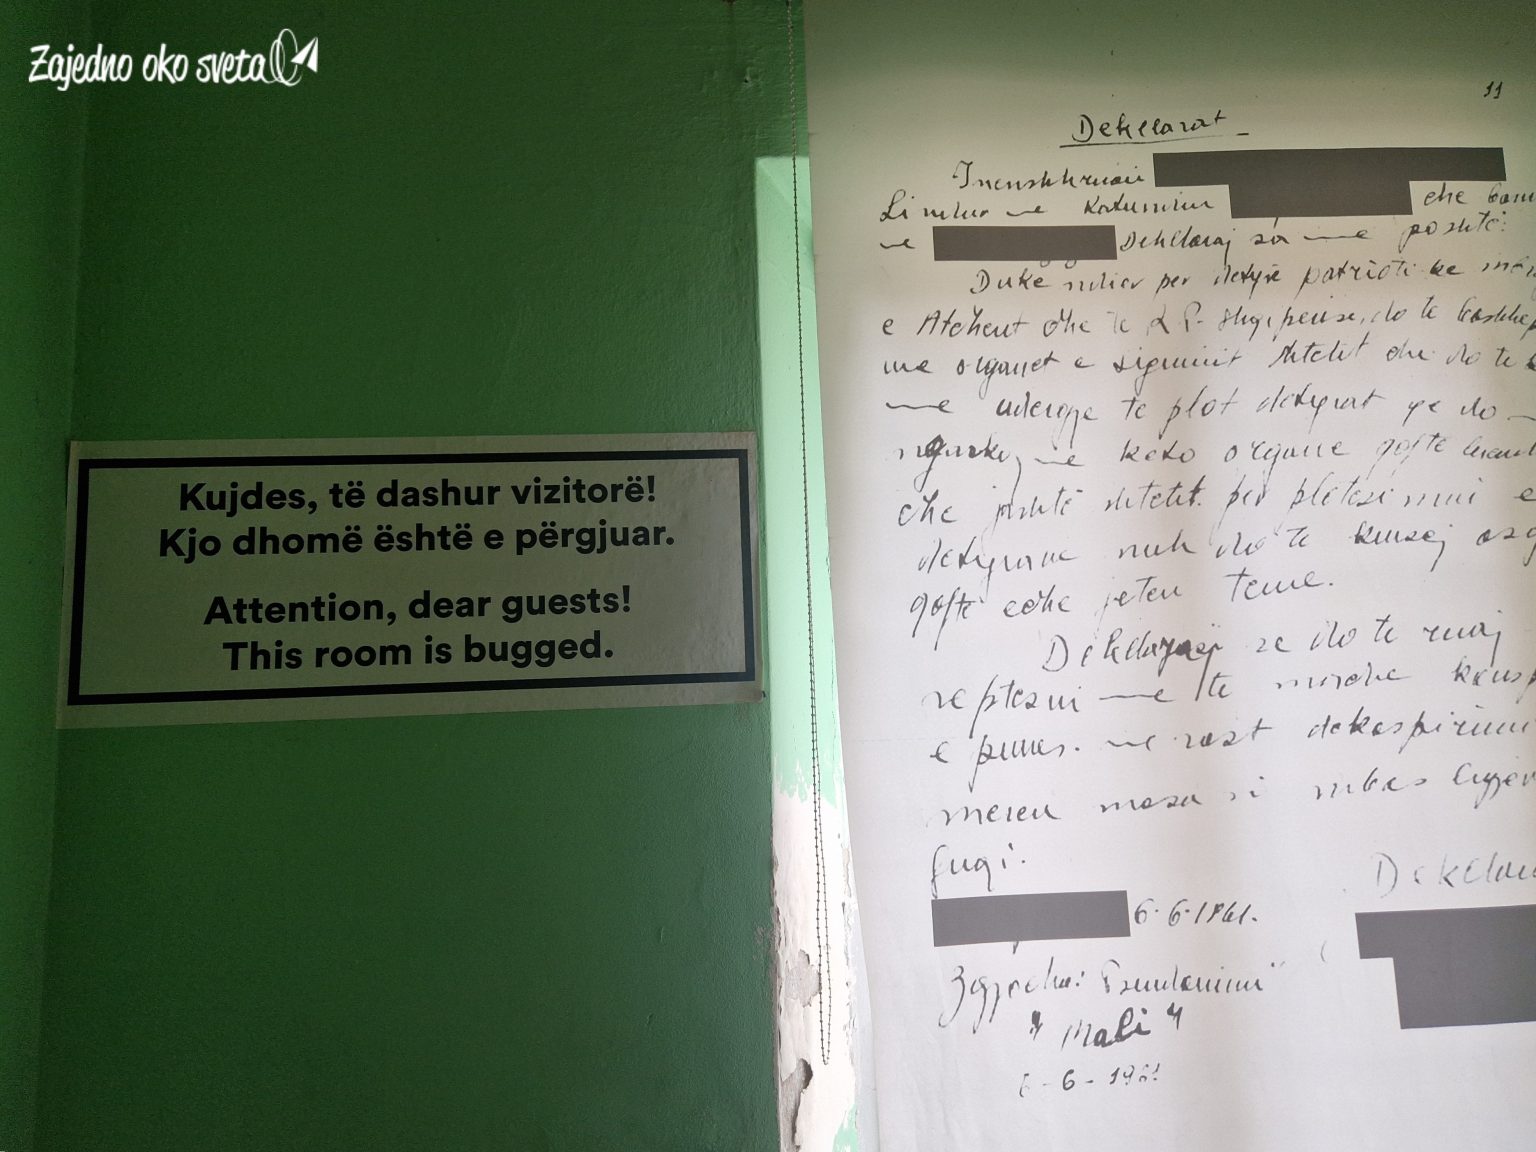 Zajedno oko sveta
Kujdes, të dashur vizitorë!
Kjo dhomë është e përgjuar.
Attention, dear guests!
This room is bugged.
11
Deklarat
I nenshkruari
Lindur ne Katundin dhe banu
ne Deklaroj sa me poshtë:
Duke ndier per detyre patrioti ke
e Atdheut dhe te R P. Shqiperise, do te bashkep
me organet e sigurimit shtetit dhe do te
me te plot detyrat qe do
ngarkoj ne keto organe qofte brand
dhe jashtë shtetit. per pletesimin e
detyrave nuk do te kursej asg
qofte edhe jeten teme.
Deklaroj se do te ruaj
reptesni me te madhe konsp
e punes. ne rast dekospirimi
meren masa si mbas ligjev
fuqi.
Deklaru
6.6.1961.
Zgjedha: Pseudonimi
"Mali"
6-6-1961